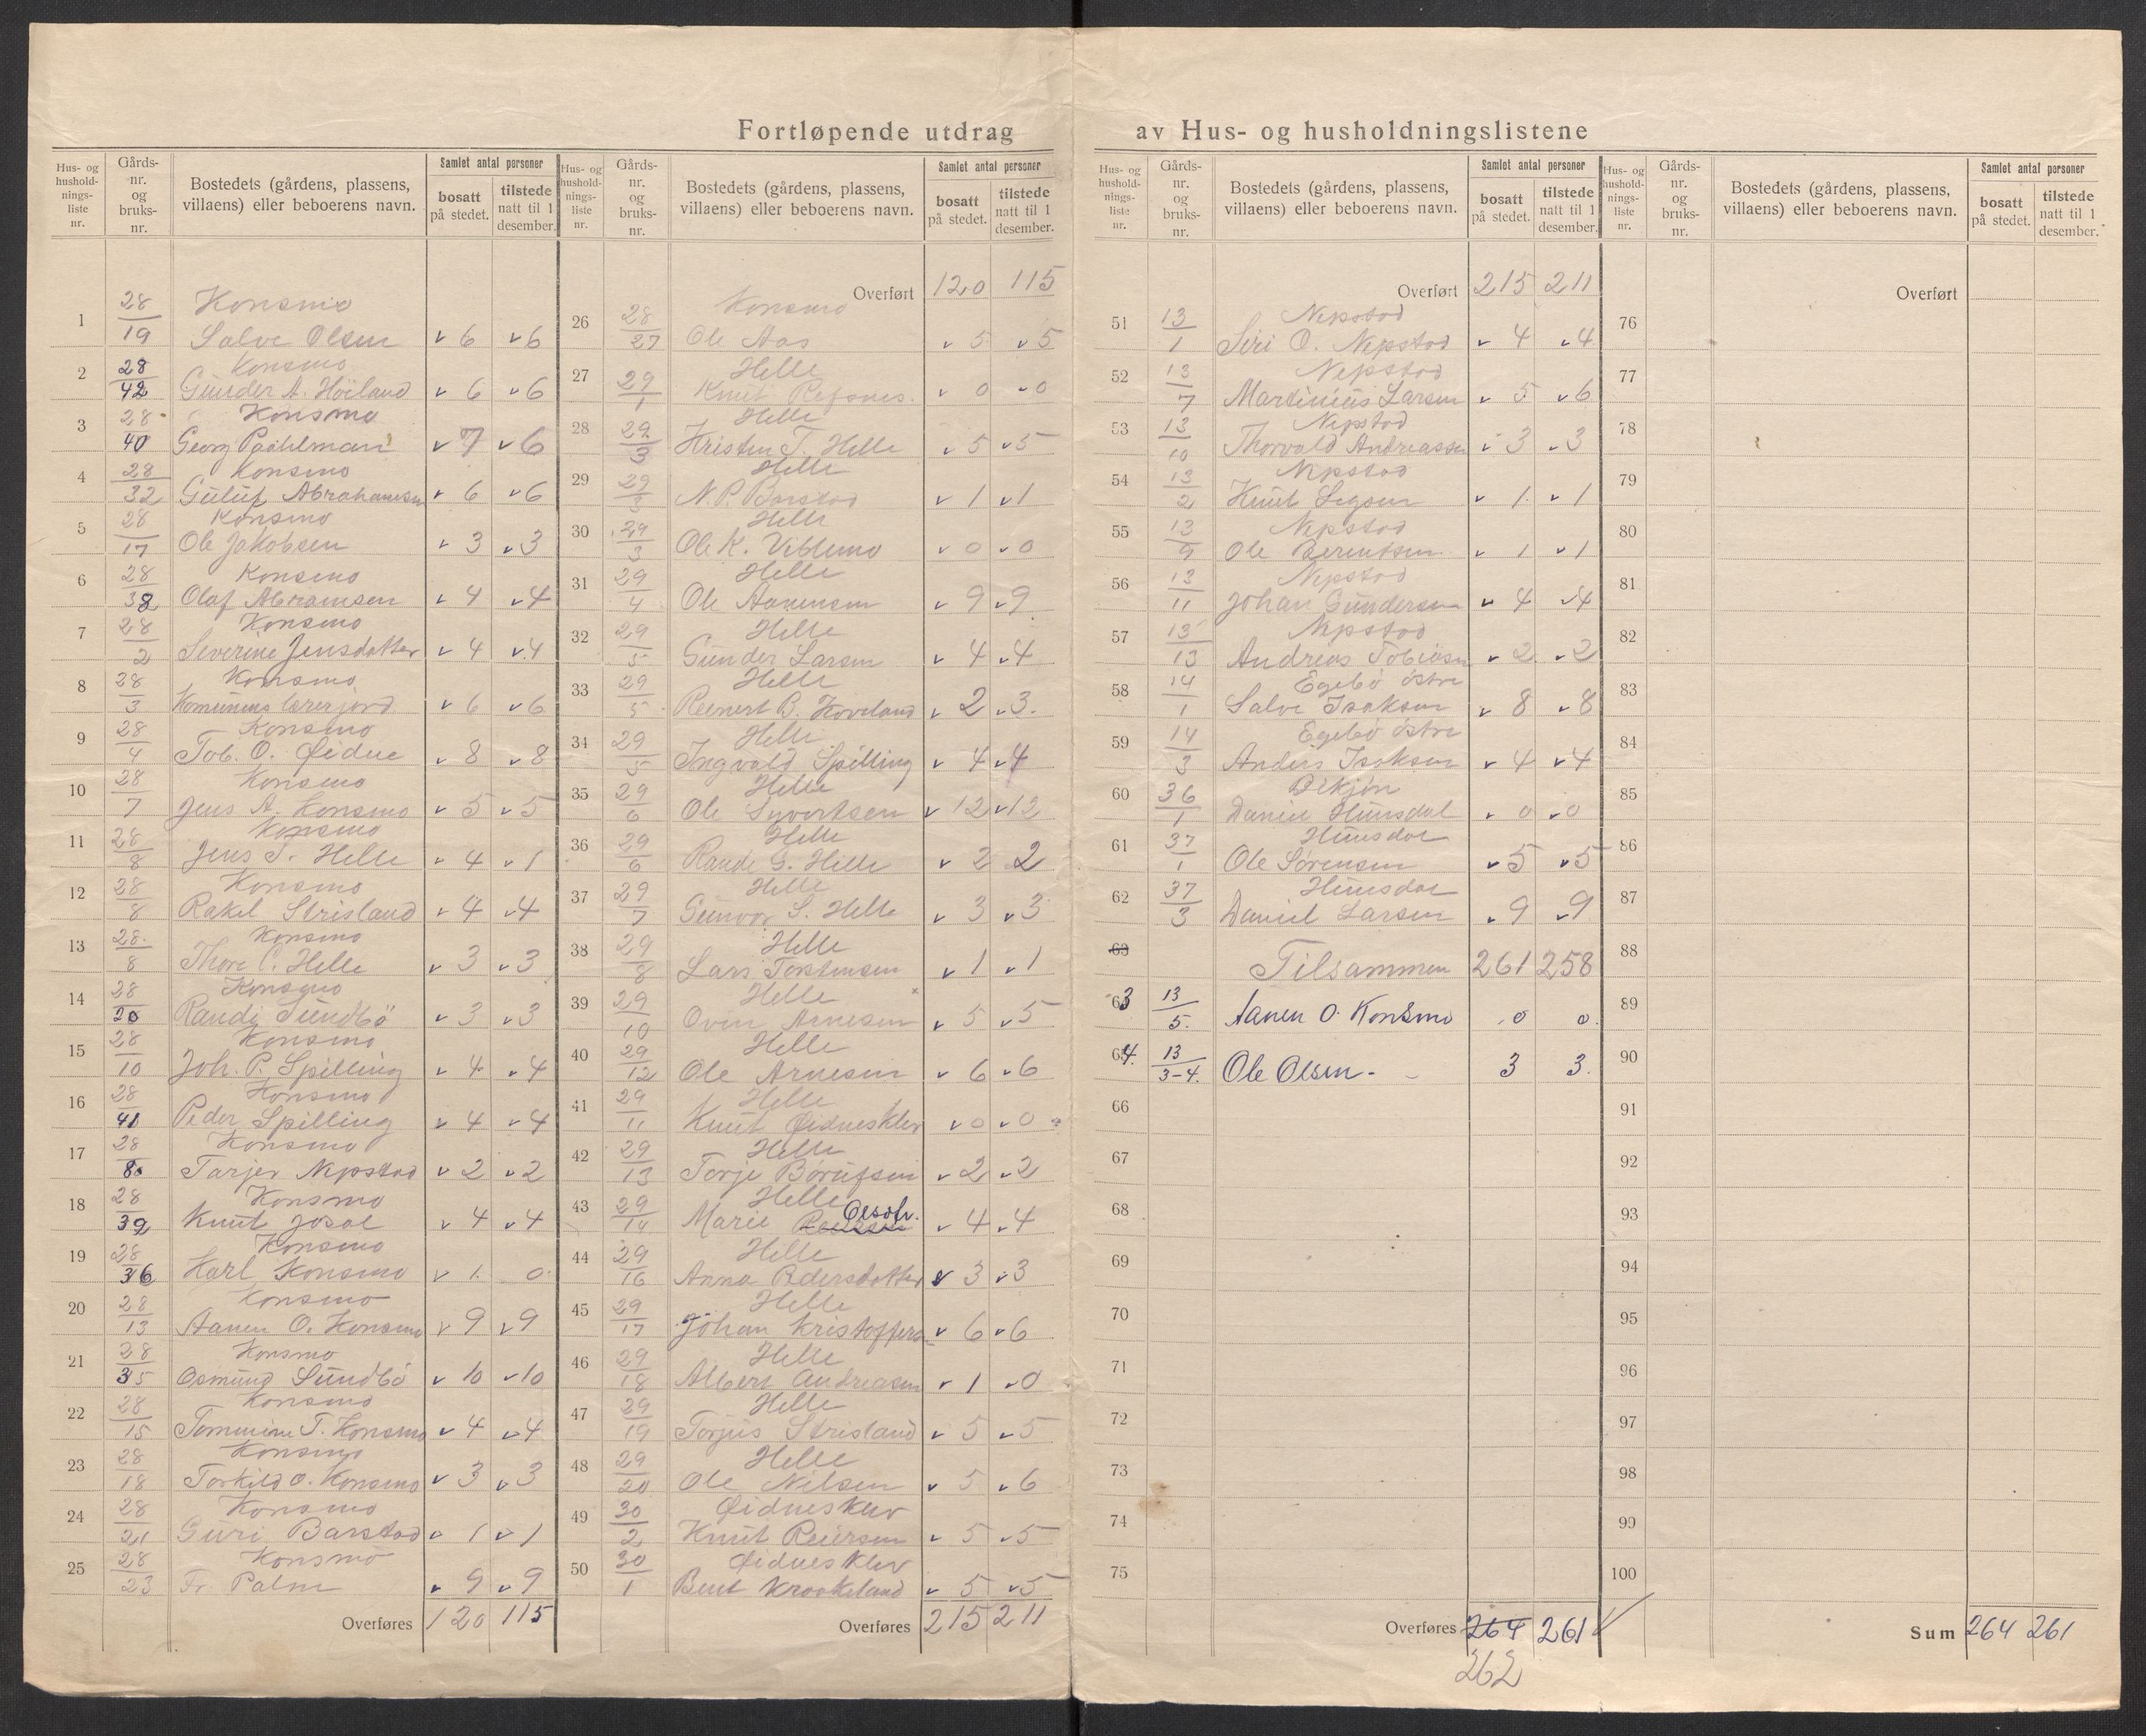 Fortløpende utdrag av Hus- og husholdningslistene
Hus- og hushold-nings-liste nr. | Gårds-nr. og bruks-nr. | Bostedets (gårdens, plassens, villaens) eller beboerens navn. | Samlet antal personer | bosatt på stedet. | tilstede natt til 1 desember.
1 28/19 Konsmo
Salve Olsen v 6 v 6
2 28/42 Konsmo
Gunder A. Höiland v 6 v 6
3 28/40 Konsmo
Georg v 7 v 6
4 28/32 Konsmo
Guluf Abrahamsen v 6 v 6
5 28/17 Konsmo
Ole Jakobsen v 3 v 3
6 28/38 Konsmo
Olaf Abramsen v 4 v 4
7 28/2 Konsmo
Severine Jensdatter v 4 v 4
8 28/3 Konsmo
Komunens lærerjord v 6 v 6
9 28/4 Konsmo
Tob. O. Øidne v 8 v 8
10 28/7 Konsmo
Jens A. Konsmo v 5 v 5
11 28/8 Konsmo
Jens T. Helle v 4 v 1
12 28/8 Konsmo
Rakel Strisland v 4 v 4
13 28/8 Konsmo
Thore C. Helle v 3 v 3
14 28/20 Konsmo
Randi Sundbö v 3 v 3
15 28/10 Konsmo
Joh. P. Spilling v 4 v 4
16 28/41 Konsmo
Peder Spilling v 4 v 4
17 28 Konsmo
Tarjer Nepstad v 2 v 2
18 28/39 Konsmo
Knut Josal v 4 v 4
19 28/36 Konsmo
Karl Konsmo v 1 0
20 28/13 Konsmo
Aanen O. Konsmo v 9 v 9
21 28/35 Konsmo
Osmund Sundbö v 10 v 10
22 28/15 Konsmo
Tommine T. Konsmo v 4 v 4
23 28/18 Konsmo
Torkild O. Konsmo v 3 v 3
24 28/21 Konsmo
Guri Barstad v 1 v 1
25 28/23 Konsmo
Fr. Palm v 9 v 9
Overføres 120 115
Hus- og hushold-nings-liste nr. | Gårds-nr. og bruks-nr. | Bostedets (gårdens, plassens, villaens) eller beboerens navn. | Samlet antal personer | bosatt på stedet. | tilstede natt til 1 desember.
Overført 120 115
26 28/27 Konsmo
Ole Aas v 5 v 5
27 29/1 Helle
Knut Refsnes. v 0 v 0
28 29/3 Helle
Kristen T. Helle v 5 v 5
29 29/3 Helle
N. P. Barstad v 1 v 1
30 29/3 Helle
Ole K. Viblemo v 0 v 0
31 29/4 Helle
Ole Aanensen v 9 v 9
32 29/5 Helle
Gunder Larsen v 4 v 4
33 29/5 Helle
Reinert B. Hoveland v 2 v 3.
34 29/5 Helle
Ingvald Spilling v 4 v 4
35 29/6 Helle
Ole Syvertsen v 12 v 12
36 29/6 Helle
Randi G. Helle v 2 2
37 29/7 Helle
Gunvor S. Helle v 3 v 3
38 29/8 Helle
Lars Torstensen v 1 v 1
39 29/10 Helle
Oven Arnesen v 5 v 5
40 29/12 Helle
Ole Arnesen v 6 v 6
41 29/11 Helle
Knut Øidneskler v 0 v 0
42 29/13 Helle
Torje Börufsen v 2 v 2
43 29/14 Helle
Marie Olsdtr. v 4 v 4
44 29/16 Helle
Anna Pedersdatter v 3 v 3
45 29/17 Helle
Johan Kristoffers v 6 v 6
46 29/18 Helle
Albert Andreasen v 1 v 0
47 29/19 Helle
Torjus Strisland v 5 v 5
48 29/20 Helle
Ole Nilsen v 5 v 6
49 30/2 Øidneskler
Knut Reiersen v 5 v 5
50 30/1 Øidneskler
Bent Kraakeland v 5 v 5
Overføres 215 211
Hus- og hushold-nings-liste nr. | Gårds-nr. og bruks-nr. | Bostedets (gårdens, plassens, villaens) eller beboerens navn. | Samlet antal personer | bosatt på stedet. | tilstede natt til 1 desember.
Overført 215 211
51 13/1 Nepstad
Siri O. Nepstad v 4 v 4
52 13/7 Nepstad
Martinius Larsen v 5 v 6
53 13/10 Nepstad
Thorvald Andreassen v 3 v 3
54 13/2 Nepstad
Knut v 1 v 1
55 13/9 Nepstad
Ole Berentsen v 1 v 1
56 13/11 Nepstad
Johan Gundersen v 4 v 4
57 13/13 Nepstad
Andreas Tobiasen v 2 v 2
58 14/1 Egebö östre
Salve Isaksen v 8 v 8
59 14/3 Egebö östre
Anders Isaksen v 4 v 4
60 36/1
Daniel Hunsdal v 0 v 0
61 37/1 Hunsdal
Ole Sørensen v 5 v 5
62 37/3 Hunsdal
Daniel Larsen v 9 v 9
63 Tilsammen 261 258
63 13/5. Aanen O. Konsmo 0 0.
64. 13/3-4. Ole Olsen - 3 3.
66
67
68
69
70
71
72
73
74
75
Overføres 264 261
262
Hus- og hushold-nings-liste nr. | Gårds-nr. og bruks-nr. | Bostedets (gårdens, plassens, villaens) eller beboerens navn. | Samlet antal personer | bosatt på stedet. | tilstede natt til 1 desember.
Overført
76
77
78
79
80
81
82
83
84
85
86
87
88
89
90
91
92
93
94
95
96
97
98
99
100
Sum 264 261